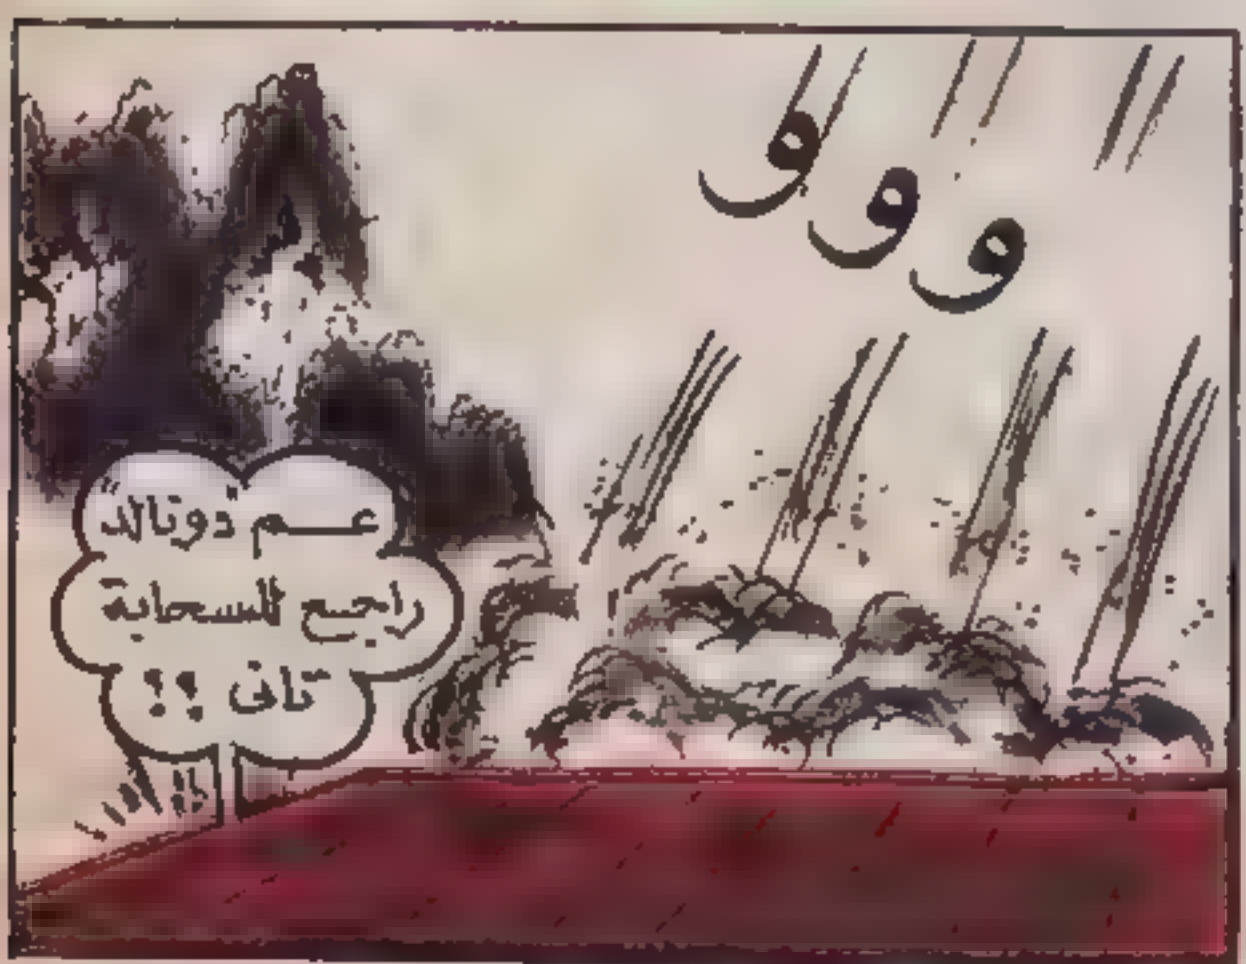 ووو
عم دونالد
راجع للسحابة
تانى ؟!